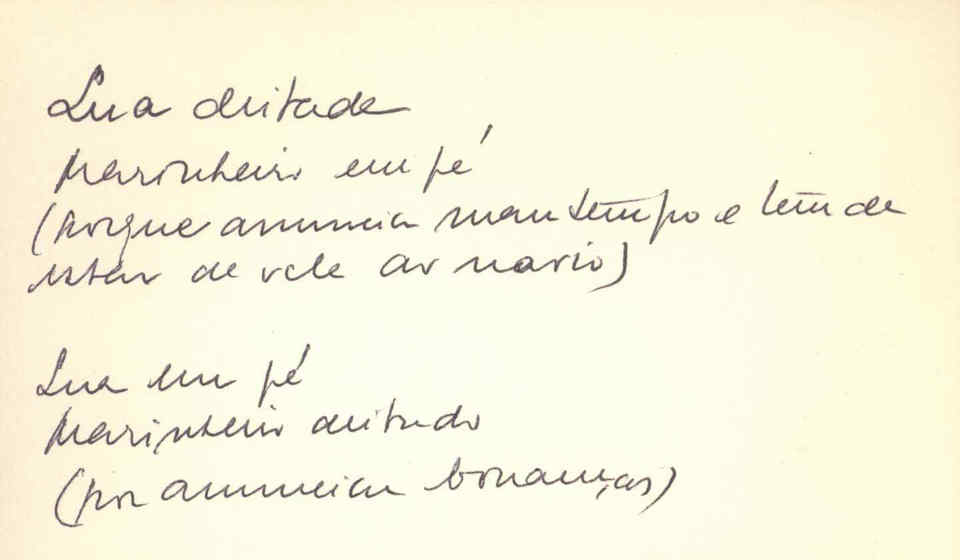 Lua deitada
Marinheiro em pé
(porque anuncia mau tempo e tem de
estar de vela ao navio)
Lua em pé
Marinheiro deitado
(por anunciar bonanças)